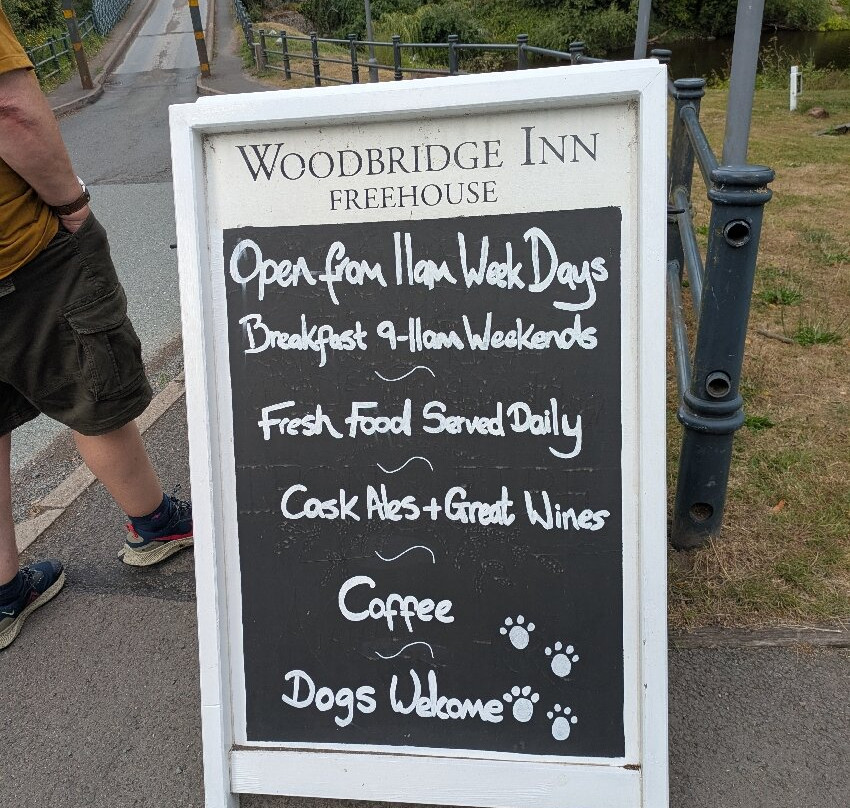 WOODBRIDGE INN
FREEHOUSE
Open from 11am Week Days
Breakfast 9-11am Weekends
Fresh Food Served Daily
Cask Ales + Great Wines
Coffee
Dogs Welcome